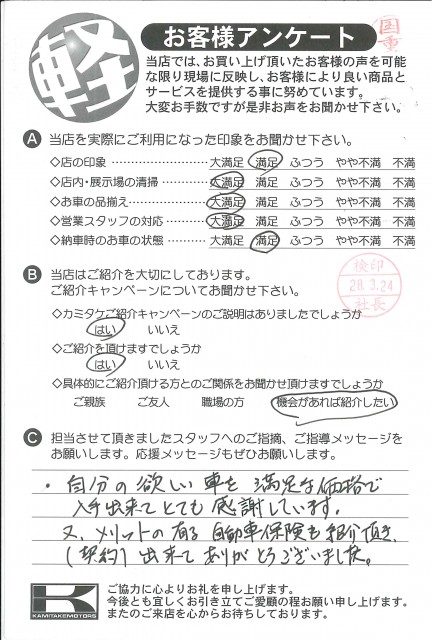 軽
お客様アンケート
国重
当店では、お買い上げ頂いたお客様の声を可能
な限り現場に反映し、お客様により良い商品と
サービスを提供する事に努めています。
大変お手数ですが是非お声をお聞かせ下さい。
A 当店を実際にご利用になった印象をお聞かせ下さい。
◇店の印象 大満足 満足 ふつう やや不満 不満
◇店内・展示場の清掃 大満足 満足 ふつう やや不満 不満
◇お車の品揃え 大満足 満足 ふつう やや不満 不満
◇営業スタッフの対応 大満足 満足 ふつう やや不満 不満
◇納車時のお車の状態 大満足 満足 ふつう やや不満 不満
B 当店はご紹介を大切にしております。
ご紹介キャンペーンについてお聞かせ下さい。
検印
28.3.24
社長
◇カミタケご紹介キャンペーンのご説明はありましたでしょうか
はい いいえ
◇ご紹介を頂けますでしょうか
はい いいえ
◇具体的にご紹介頂ける方とのご関係をお聞かせ頂けますでしょうか
ご親族 ご友人 職場の方 機会があれば紹介したい
C 担当させて頂きましたスタッフへのご指摘、ご指導メッセージを
お願いします。応援メッセージもぜひお願いします。
・自分の欲しい車を満足な価格で
入手出来てとても感謝しています。
又、メリットの有る自動車保険も紹介頂き、
(契約)出来てありがとうございました。
K
KAMITAKEMOTORS
ご協力に心よりお礼を申し上げます。
今後とも宜しくお引き立てご愛顧の程お願い申し上げます。
またのご来店を心からお待ちしております。